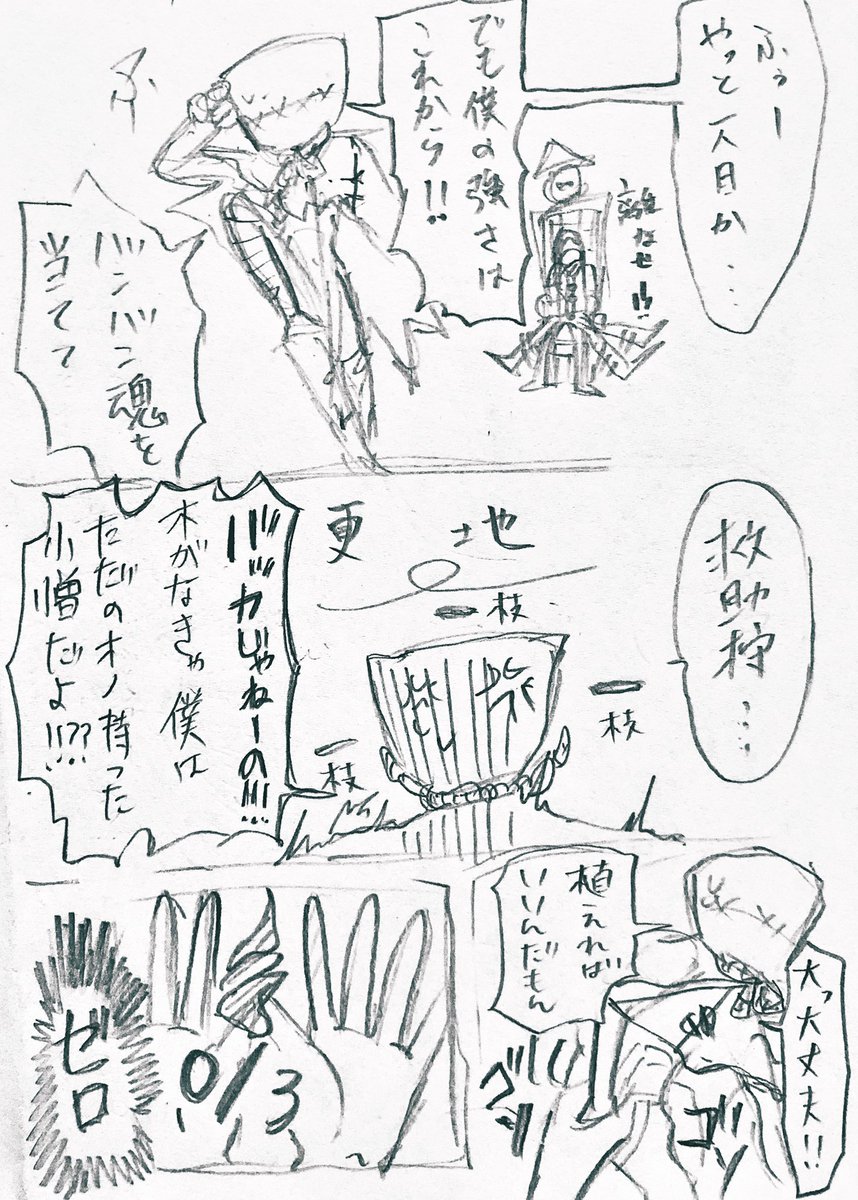 ふぅー
やっと一人目か...
離なせ!!!
でも僕の強さは
これから!!
ふ
バンバン魂を
当てて
救助狩...
更地
一枝
一枝
一枝
バッカじゃねーの!!!...
木がなきゃ僕は
ただのオノ持った
小僧だよ!!??
大っ大丈夫!!
植えれば
いいんだもん
0/3
ゼロ